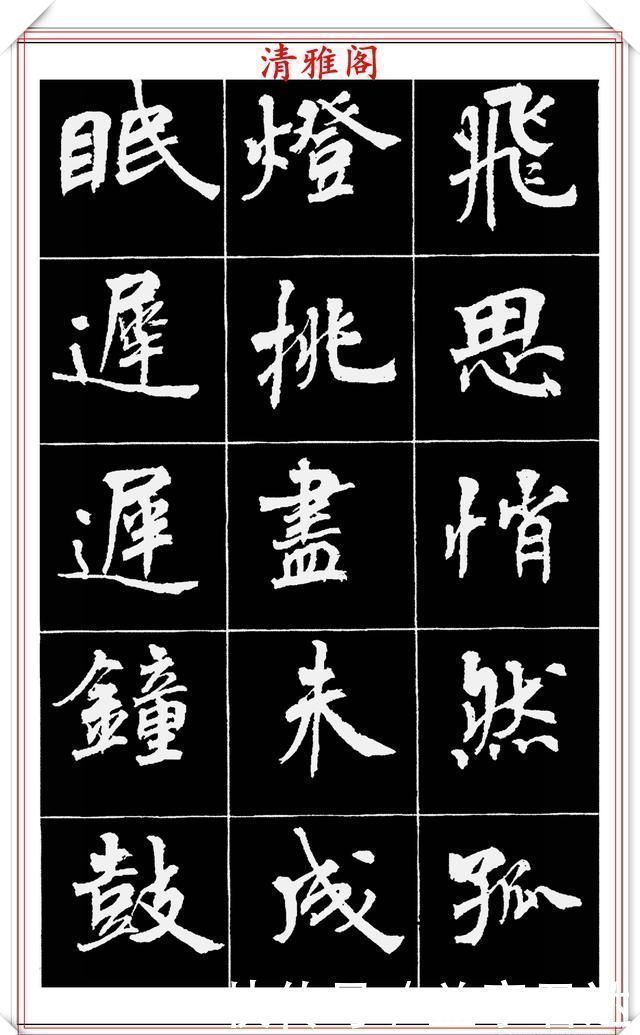 清雅阁
飛思悄然孤
燈挑盡未成
眠遲遲鐘鼓